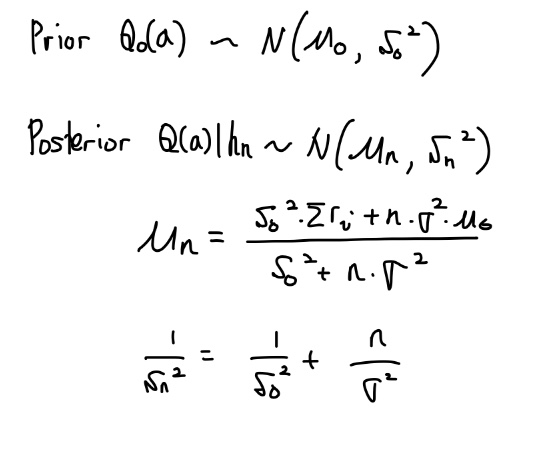 Prior Q₀(a) ~ N(μ₀, s₀²)
Posterior Q(a)|hₙ ~ N(μₙ, sₙ²)
μₙ = (s₀²·Σrᵢ + n·σ²·μ₀) / (s₀² + n·σ²)
1/sₙ² = 1/s₀² + n/σ²